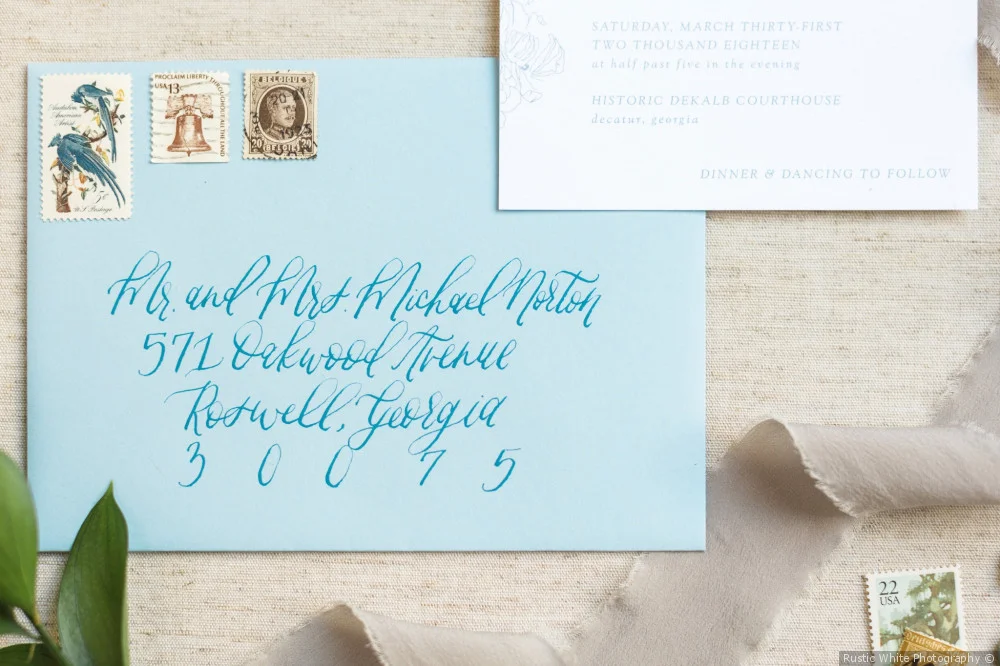 SATURDAY, MARCH THIRTY-FIRST
TWO THOUSAND EIGHTEEN
at half past five in the evening
HISTORIC DEKALB COURTHOUSE
decatur, georgia
DINNER & DANCING TO FOLLOW
Audubon
American
Artist
5c
U.S. Postage
PROCLAIM LIBERTY THROUGHOUT ALL THE LAND
USA 13c
BELGIQUE
20 BELGIË 20
Mr. and Mrs. Michael Norton
571 Oakwood Avenue
Roswell, Georgia
3 0 0 7 5
22
USA
Rustic White Photography ©